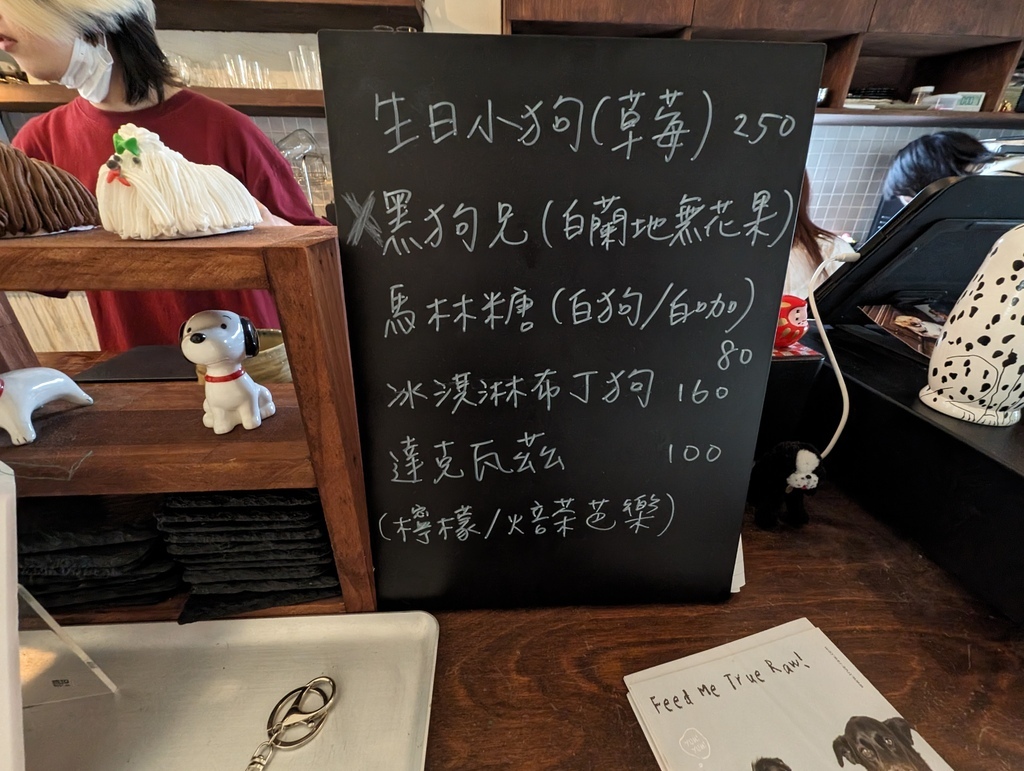 生日小狗(草莓) 250
X黑狗兄(白蘭地無花果)
馬林糖(白狗/白咖)
80
冰淇淋布丁狗 160
達克瓦茲 100
(檸檬/焙茶芭樂)
Feed Me True Raw!